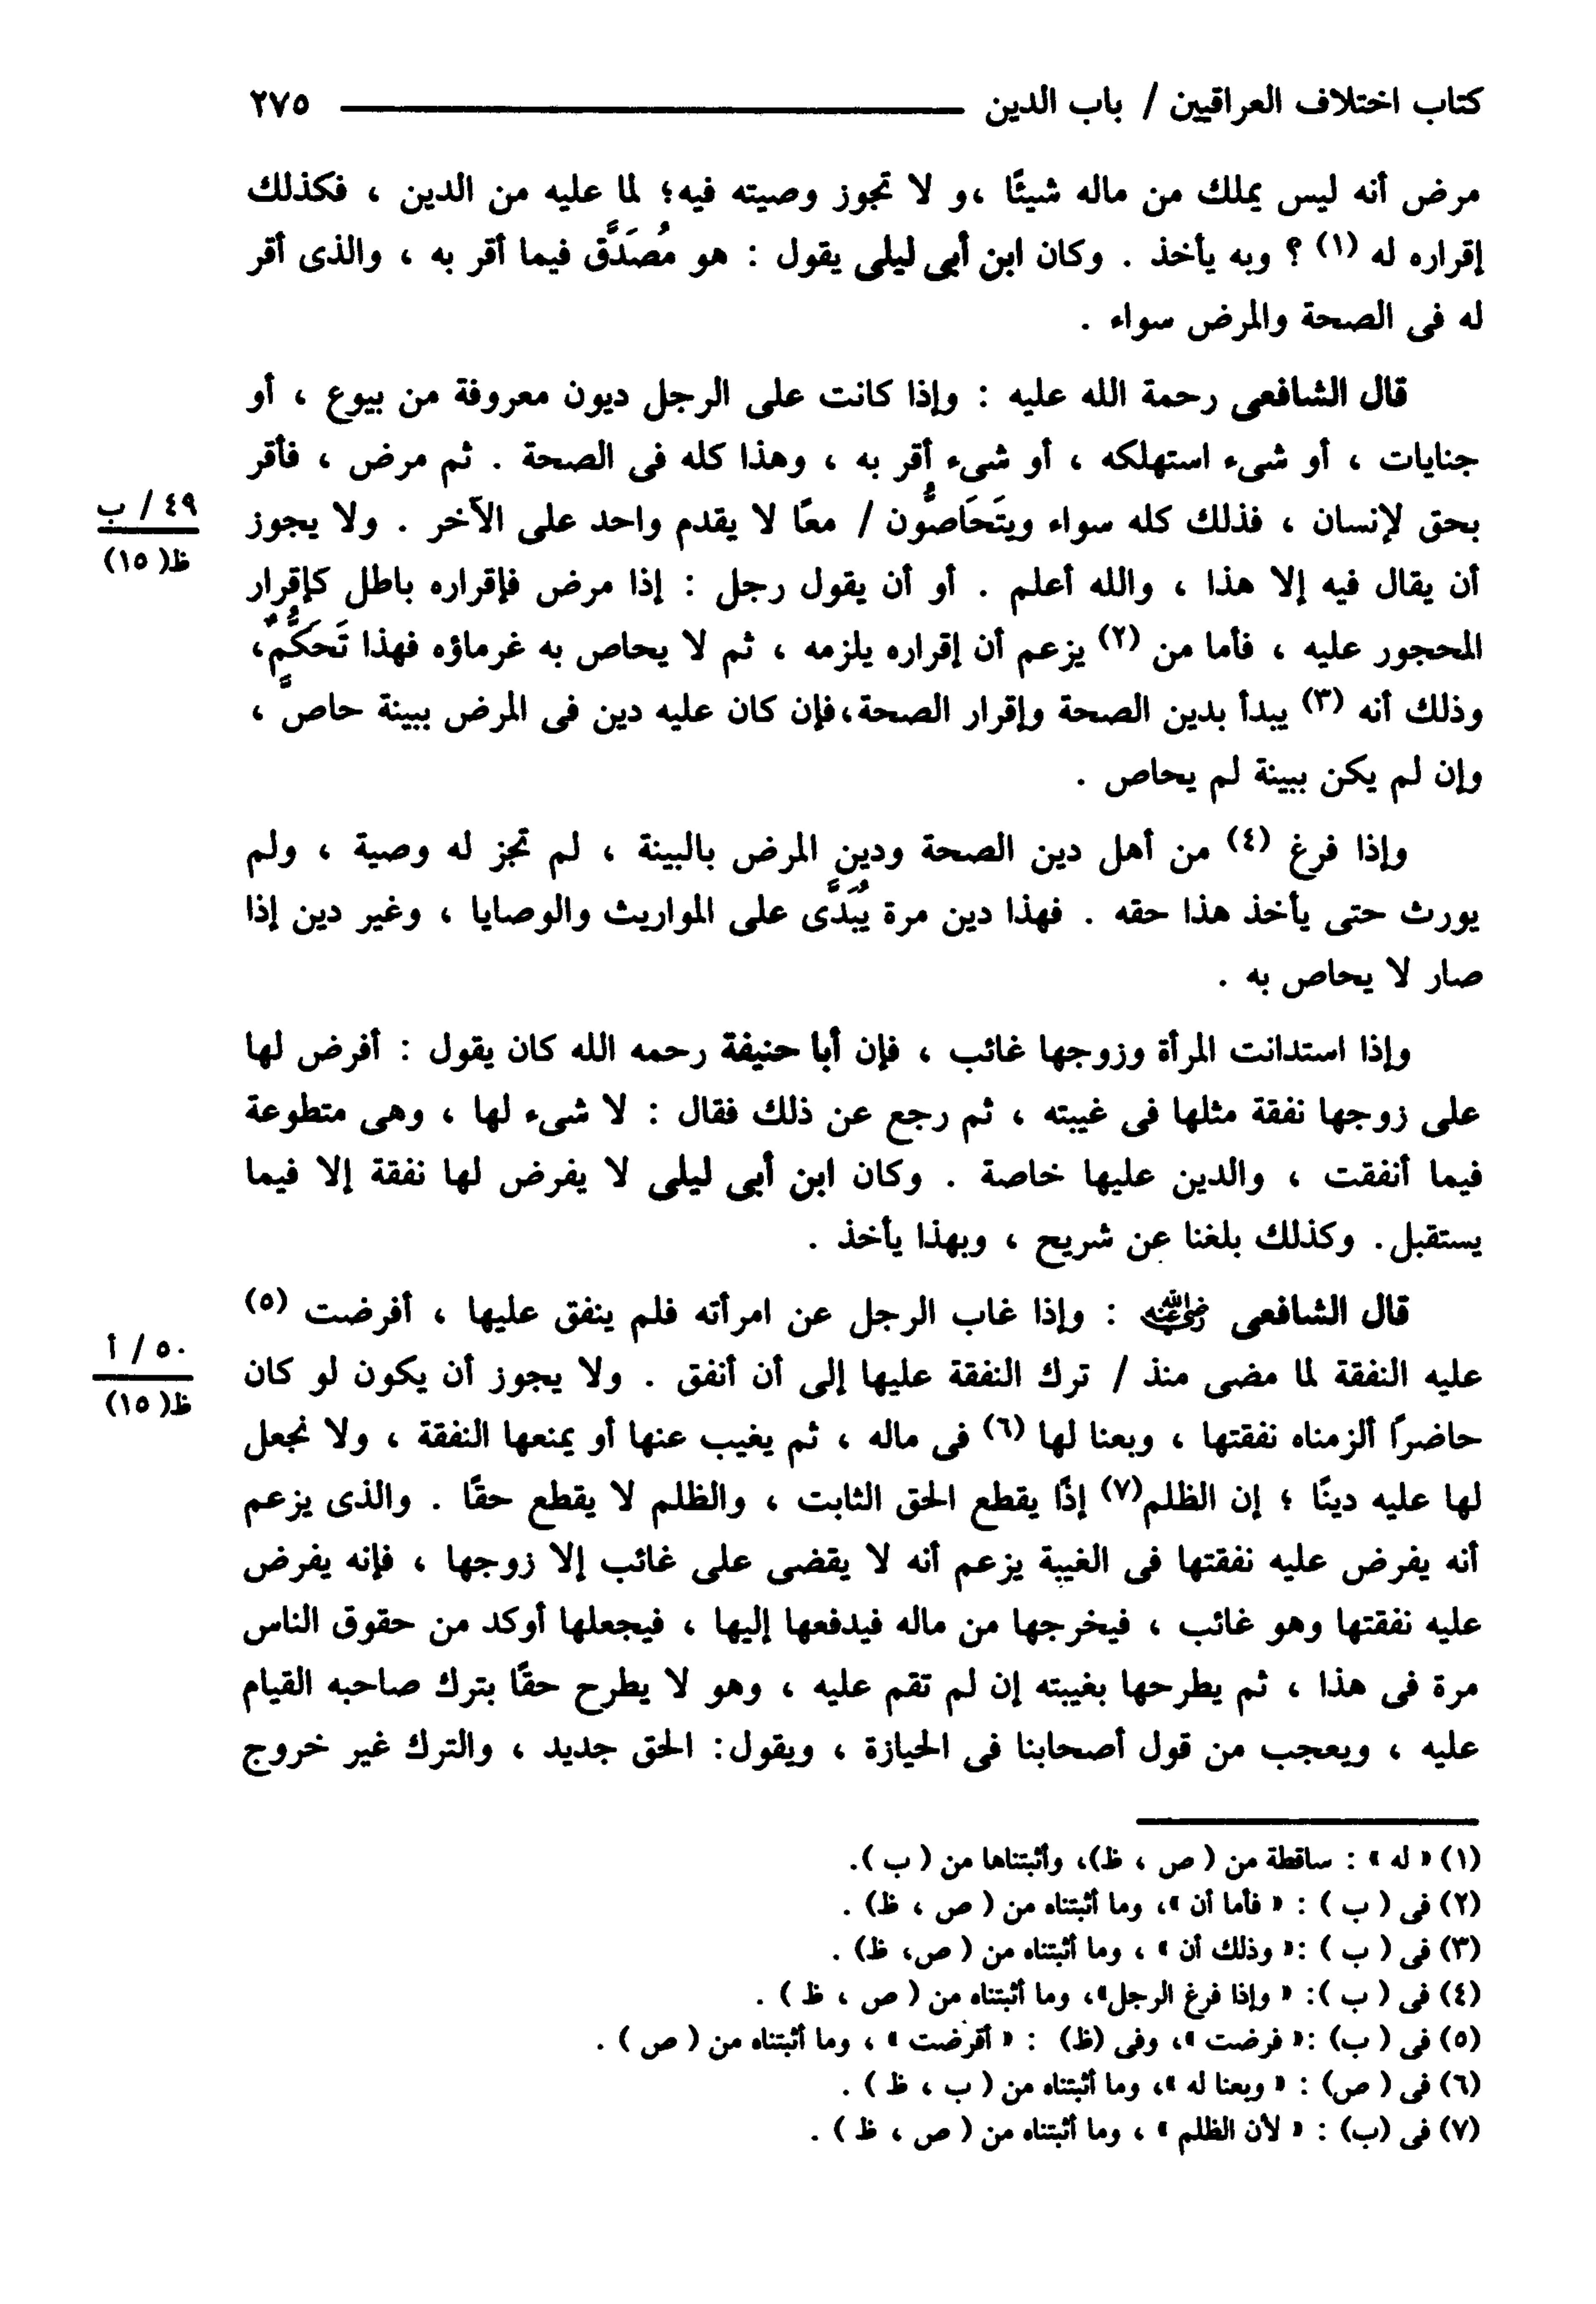 كتاب اختلاف العراقيين / باب الدين ــــــــــــــــــــ ٢٧٥
مرض أنه ليس يملك من ماله شيئًا ،و لا تجوز وصيته فيه؛ لما عليه من الدين ، فكذلك
إقراره له (١) ؟ وبه يأخذ . وكان ابن أبى ليلى يقول : هو مُصَدَّق فيما أقر به ، والذى أقر
له فى الصحة والمرض سواء .
قال الشافعى رحمة الله عليه : وإذا كانت على الرجل ديون معروفة من بيوع ، أو
جنايات ، أو شىء استهلكه ، أو شىء أقر به ، وهذا كله فى الصحة . ثم مرض ، فأقر
بحق لإنسان ، فذلك كله سواء ويتَحَاصُّون / معًا لا يقدم واحد على الآخر . ولا يجوز
٤٩ / ب
ظ(١٥)
أن يقال فيه إلا هذا ، والله أعلم . أو أن يقول رجل : إذا مرض فإقراره باطل كإقرار
المحجور عليه ، فأما من (٢) يزعم أن إقراره يلزمه ، ثم لا يحاص به غرماؤه فهذا تَحَكُّمٌ،
وذلك أنه (٣) يبدأ بدين الصحة وإقرار الصحة،فإن كان عليه دين فى المرض ببينة حاصٍّ ،
وإن لم يكن ببينة لم يحاص .
وإذا فرغ (٤) من أهل دين الصحة ودين المرض بالبينة ، لم تجز له وصية ، ولم
يورث حتى يأخذ هذا حقه . فهذا دين مرة يُبَدَّى على المواريث والوصايا ، وغير دين إذا
صار لا يحاص به .
وإذا استدانت المرأة وزوجها غائب ، فإن أبا حنيفة رحمه الله كان يقول : أفرض لها
على زوجها نفقة مثلها فى غيبته ، ثم رجع عن ذلك فقال : لا شىء لها ، وهى متطوعة
فيما أنفقت ، والدين عليها خاصة . وكان ابن أبى ليلى لا يفرض لها نفقة إلا فيما
يستقبل. وكذلك بلغنا عن شريح ، وبهذا يأخذ .
قال الشافعى رضي الله عنه : وإذا غاب الرجل عن امرأته فلم ينفق عليها ، أفرضت (٥)
عليه النفقة لما مضى منذ / ترك النفقة عليها إلى أن أنفق . ولا يجوز أن يكون لو كان
٥٠ / أ
ظ(١٥)
حاضرًا ألزمناه نفقتها ، وبعنا لها (٦) فى ماله ، ثم يغيب عنها أو يمنعها النفقة ، ولا نجعل
لها عليه دينًا ؛ إن الظلم(٧) إذًا يقطع الحق الثابت ، والظلم لا يقطع حقًا . والذى يزعم
أنه يفرض عليه نفقتها فى الغيبة يزعم أنه لا يقضى على غائب إلا زوجها ، فإنه يفرض
عليه نفقتها وهو غائب ، فيخرجها من ماله فيدفعها إليها ، فيجعلها أوكد من حقوق الناس
مرة فى هذا ، ثم يطرحها بغيبته إن لم تقم عليه ، وهو لا يطرح حقًا بترك صاحبه القيام
عليه ، ويعجب من قول أصحابنا فى الحيازة ، ويقول: الحق جديد ، والترك غير خروج
(١) « له » : ساقطة من ( ص ، ظ)، وأثبتناها من ( ب ).
(٢) فى ( ب ) : « فأما أن »، وما أثبتناه من ( ص ، ظ) .
(٣) فى ( ب ) :« وذلك أن » ، وما أثبتناه من ( ص، ظ) .
(٤) فى ( ب ): « وإذا فرغ الرجل»، وما أثبتناه من ( ص ، ظ ) .
(٥) فى ( ب) :« فرضت »، وفى (ظ) : « أقرضت » ، وما أثبتناه من ( ص ) .
(٦) فى ( ص) : « وبعنا له »، وما أثبتناه من ( ب ، ظ ) .
(٧) فى (ب) : « لأن الظلم » ، وما أثبتناه من ( ص ، ظ ) .